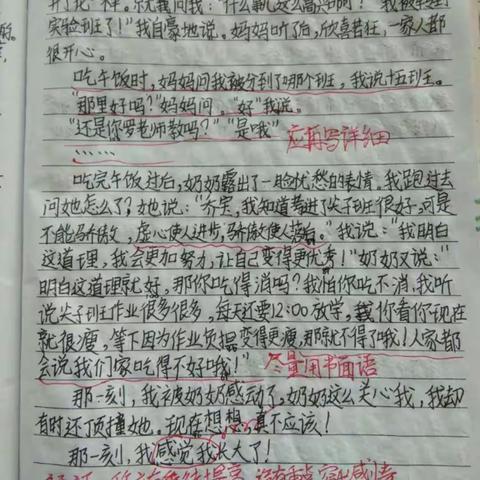 实验班了！"我自豪地说。妈妈听了后，欣喜若狂，一家人都
很开心。
吃午饭时，妈妈问我被分到了哪个班，我说十五班王。
"那里好吗？"妈妈问，"好"我说。
"还是你罗老师教吗？""是哦" 应再写详细
……
吃完午饭过后，奶奶露出了一脸忧愁的表情，我跑过去
问她怎么了？她说："乔宝，我知道若进了尖子班很好，可是
不能骄傲，虚心使人进步，骄傲使人落后。"我说："我明白
这道理，我会更加努力，让自己变得更优秀！"奶奶又说："
明白这道理就好，那你吃得消吗？我怕你吃不消，我听
说尖子班作业很多很多，每天还要12:00放学，我你看你现在
就很瘦，等下因为作业负担变得更瘦，那就不得了哦！人家都
会说我们家吃得不好哦！" 尽量用书面语
那一刻，我被奶奶感动了，奶奶这么关心我，我却
有时还丁页撞她。现在想想，真不应该！
那一刻，我感觉我长大了！